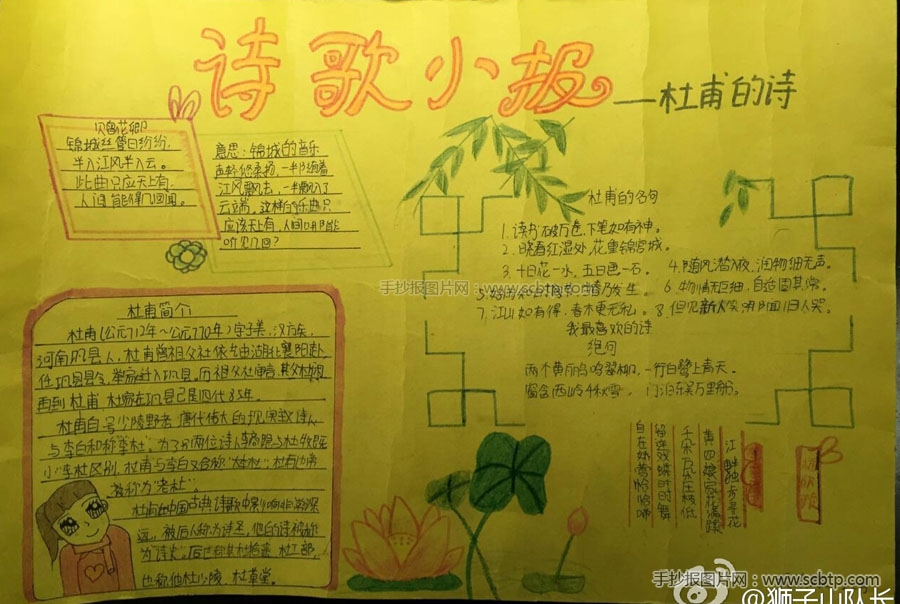 诗歌小报
—杜甫的诗
赠花卿
锦城丝管日纷纷,
半入江风半入云。
此曲只应天上有,
人间能得几回闻。
意思:锦城的音乐
声轻悠柔扬,一半随着
江风飘去,一半飘入了
云端,这样的乐曲只
应该天上有,人间
听见几回?
杜甫的名句
1.读书破万卷,下笔如有神。
2.晓看红湿处,花重锦官城。
3.十日花一水,五日画一石。
4.随风潜入夜,润物细无声。
5.好雨知时节,当春乃发生。
6.物情无巨细,自适固其常。
7.江山如有待,春木更无私。
8.但见新人笑,那闻旧人哭。
我最喜欢的诗
绝句
两个黄丽鸣翠柳,一行白鹭上青天。
窗含西岭千秋雪,门泊东吴万里船。
手抄报图片网:www.scbtp.com
杜甫简介
杜甫(公元712年~公元770年)字子美,汉族,
河南巩县人,杜甫曾祖父杜依艺由湖北襄阳赴
任巩县县令,举家迁入巩县。历祖父杜审言,其父杜闲
再到杜甫,杜家在巩县已是四代85年。
杜甫自号少陵野老,唐代伟大的现实主义诗人
与李白和称李杜"。为了分两位诗人李商隐与杜牧既
小"李杜区别,杜甫与李白又合称"大李杜",杜甫也常
被称为"老杜"。
杜甫在中国古典诗歌中影响非常深
远,被后人称为诗圣,他的诗被称
为"诗史"。后世称其杜拾遗、杜工部,
也称他杜少陵、杜草堂。
江畔独步寻花
黄四娘家花满蹊
千朵万朵压枝低
留连戏蝶时时舞
自在娇莺恰恰啼
手抄报图片网:www.scbtp.com
@狮子山队长